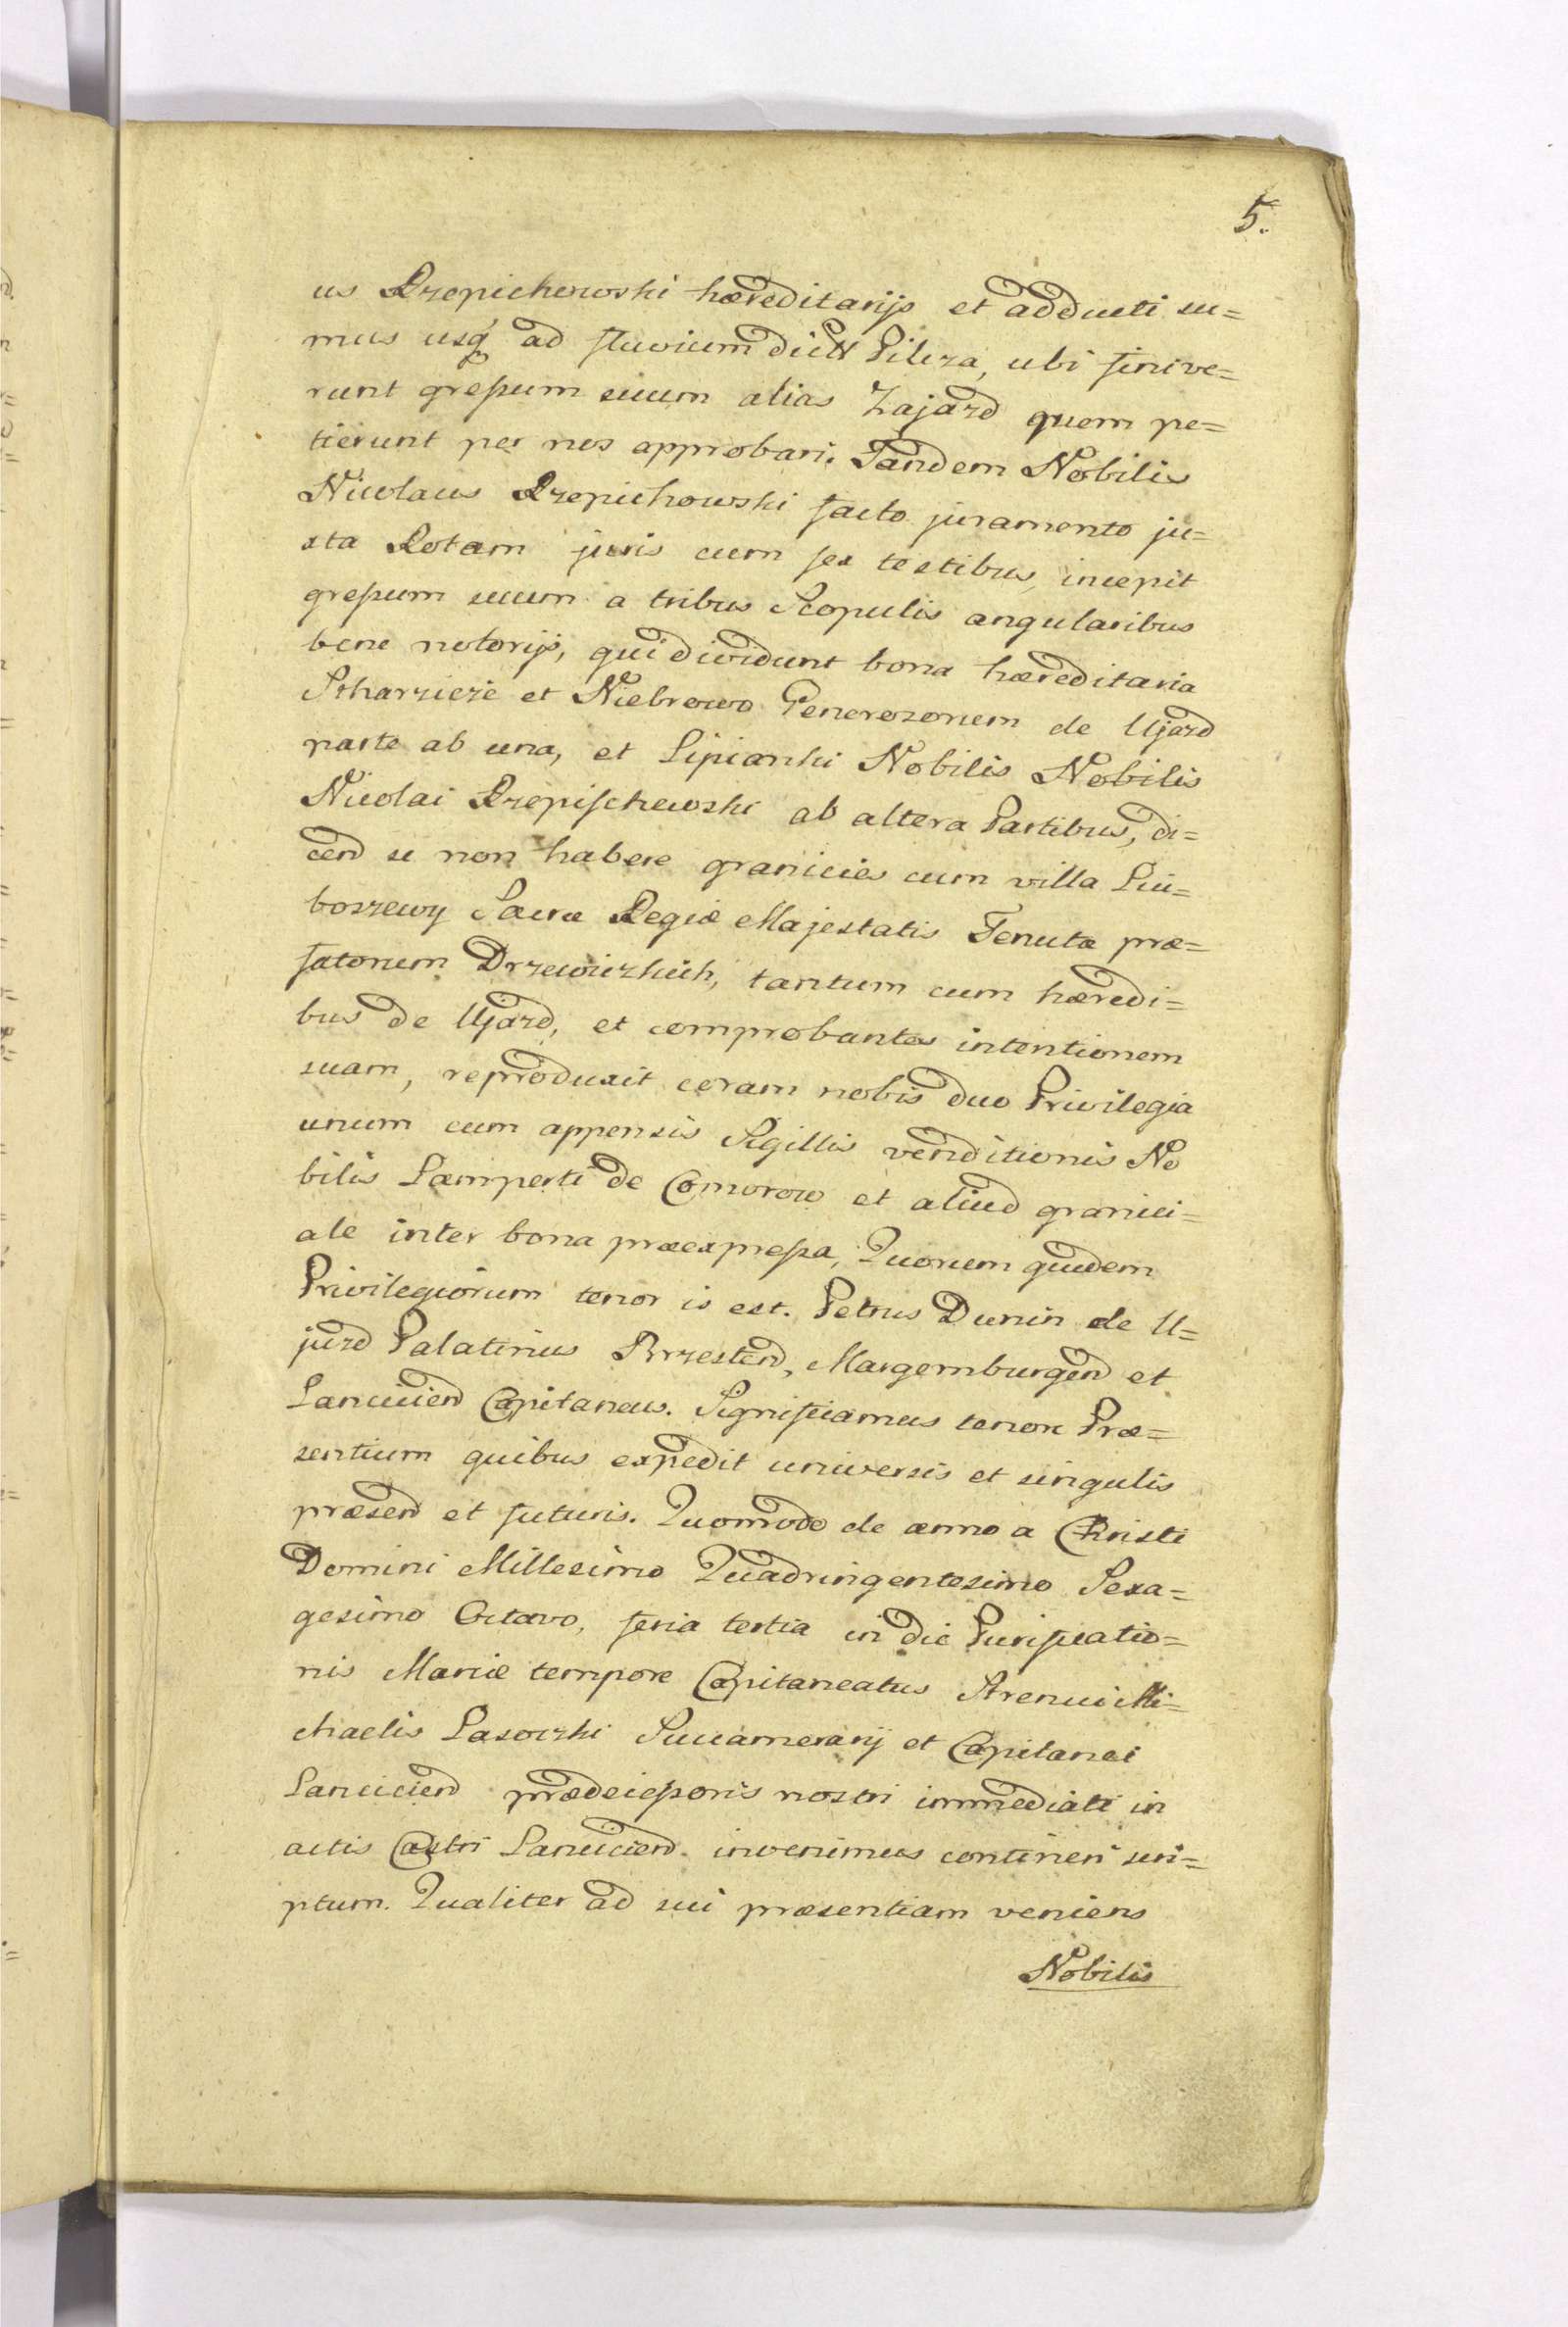 5.
us Rzepichowski hæreditarijs et adducti su=
mus usq ad fluvium dictt Pilcza, ubi finive=
runt greſsum suum alias Zajazd quem pe=
tierunt per nos approbari. Tandem Nobilis
Nicolaus Rzepichowski facto juramento ju=
xta Rotam juris cum sex testibus, incepit
greſsum suum a tribus Scopulis angularibus
bene notorijs, qui dividunt bona hæreditaria
Stharzicze et Niebrowo Generozorum de Ujazd
parte ab una, et Lipianki Nobilis Nobilis
Nicolai Rzepiſchewski ab altera Partibus, di=
cend se non habere granicies cum villa Lu=
boszewy Sacræ Regiæ Majestatis Tenutæ præ=
fatorum Drzewiczkich, tantum cum hæredi=
bus de Ujazd, et comprobantes intentionem
suam, reproduxit coram nobis duo Privilegia
unum cum appensis Sigillis venditionis No
bilis Lamperti de Comorow et aliud granici=
ale inter bona præexpreſsa, Quorum quidem
Privilegiorum tenor is est. Petrus Dunin de U=
juzd Palatinus Brzestend, Margemburgend et
Lanciciend Capitaneus. Significamus tenore Præ=
sentium quibus expedit universis et singulis
præsend et futuris. Quomodo de anno a Christi
Domini Millesimo Quadringentesimo Sexa=
gesimo Octavo, feria tertia in die Purificatio=
nis Mariæ tempore Capitaneatus Strenui Mi=
chaelis Lasoczki Succamerarij et Capitanei
Lanciciend prædeceſsoris nostri immediati in
actis Castri Lanciciend. invenimus contineri scri=
ptum. Qualiter ad sui præsentiam veniens
Nobilis